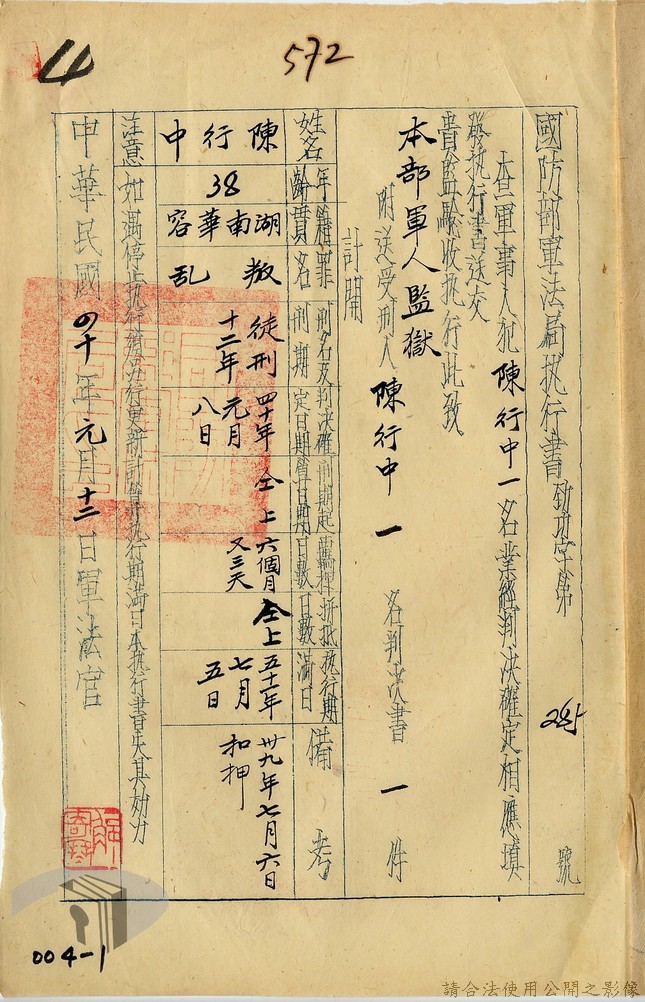 4
572
國防部軍法局執行書 勁功字第 285 號
本查軍事人犯陳行中一名業經判決確定相應填
發執行書送交
貴監驗收執行此致
本部軍人監獄
附送受刑人陳行中一名判決書一件
計開
姓名 年齡 籍貫 罪名 刑名及刑期 判決確定日期 刑期起算日期 羈押日數 折抵日數 執行期滿日 備考
陳行中 38 湖南華容 叛乱 徒刑十二年 四十年元月八日 仝上 六個月又三天 仝上 五十一年七月五日 卅九年七月六日扣押
注意 如遇停止執行情形另行更新計算執行期滿日本執行書失其効力
中華民國四十一年元月十二日軍法官
004-1
請合法使用公開之影像